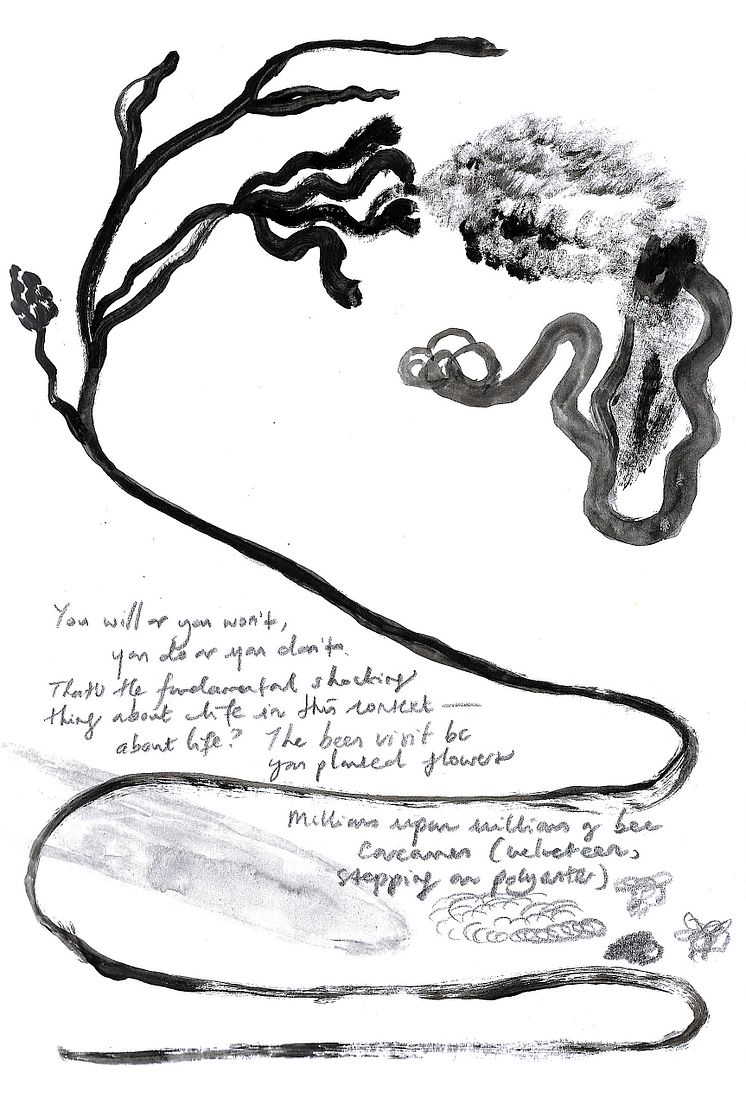 You will or you won't,
you do or you don't.
That's the fundamental shocking
thing about life in this context —
about life? The bees visit bc
you planted flowers
Millions upon millions of bee
carcasses (velveteen,
stepping on polyester)